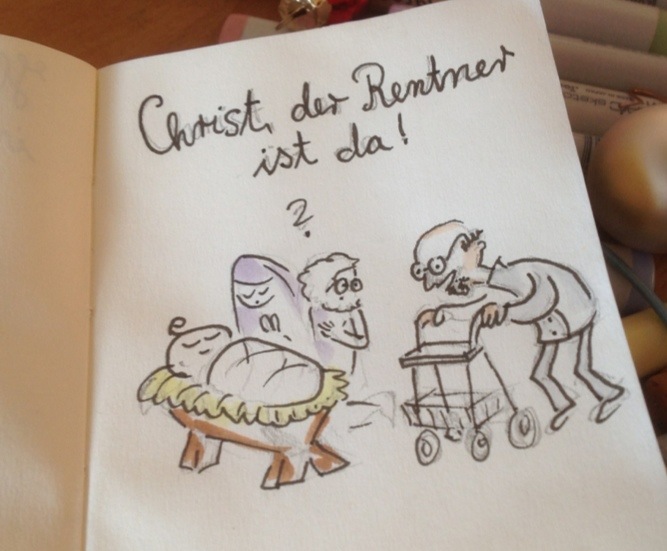 Christ, der Rentner
ist da!
?